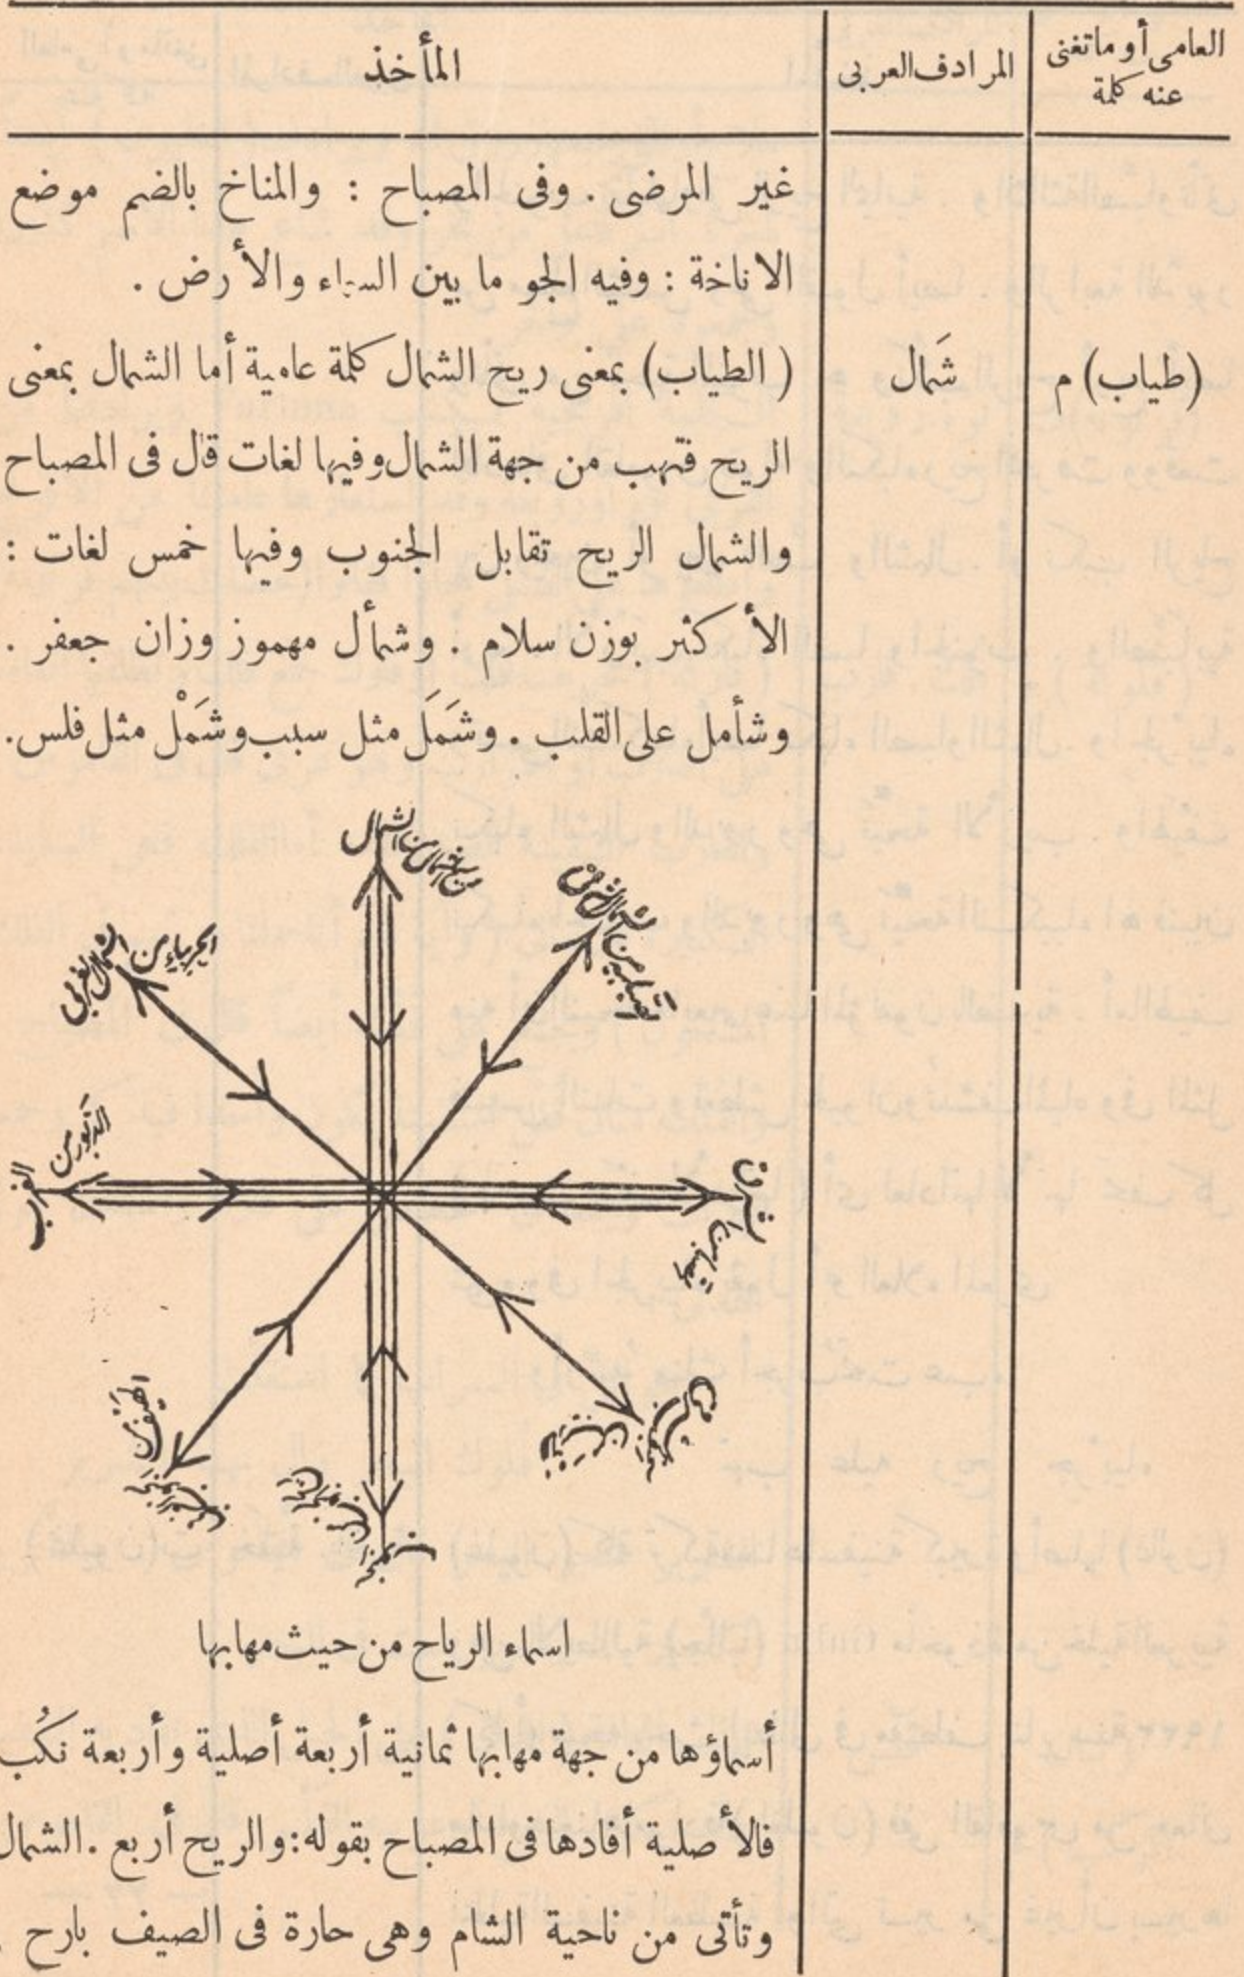 العامى أو ماتغنى عنه كلمة
المرادف العربى
المأخذ
غير المرضى . وفى المصباح : والمناخ بالضم موضع
الاناخة : وفيه الجو ما بين السماء والأرض .
(طياب) م
شَمال
( الطياب) بمعنى ريح الشمال كلمة عامية أما الشمال بمعنى
الريح فتهب من جهة الشمال وفيها لغات قال فى المصباح
والشمال الريح تقابل الجنوب وفيها خمس لغات :
الأكثر بوزن سلام . وشمأل مهموز وزان جعفر .
وشأمل على القلب . وشَمَل مثل سبب وشَمْل مثل فلس .
الشمال
الجربياء من الشمال الغربى
الدَّبور من
الغرب
الشرق
الهَيْف من
اسماء الرياح من حيث مهابها
أسماؤها من جهة مهابها ثمانية أربعة أصلية وأربعة نكُب
فالأصلية أفادها فى المصباح بقوله : والريح أربع . الشمال
وتأتى من ناحية الشام وهى حارة فى الصيف بارح